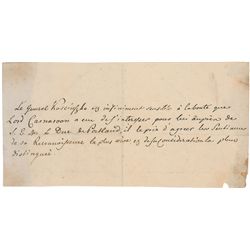 Le General Kosciuszko est infiniment sensible à la bonté que
Lord Carnarvon a eue de s'interesser pour lui auprès de
S. E. Mr. le Duc de Portland, il le prie d'agréer les Sentimens
de sa Reconnoissance la plus vive et de sa Consideration la plus
distinguée